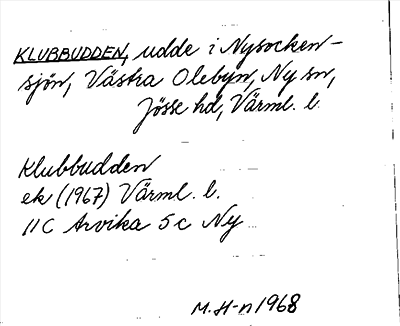 KLUBBUDDEN, udde i Nysocken-
sjön, Västra Olebyn, Ny sn,
Jösse hd, Värml. l.
Klubbudden
ek (1967) Värml. l.
11C Arvika 5c Ny
M. H-n 1968